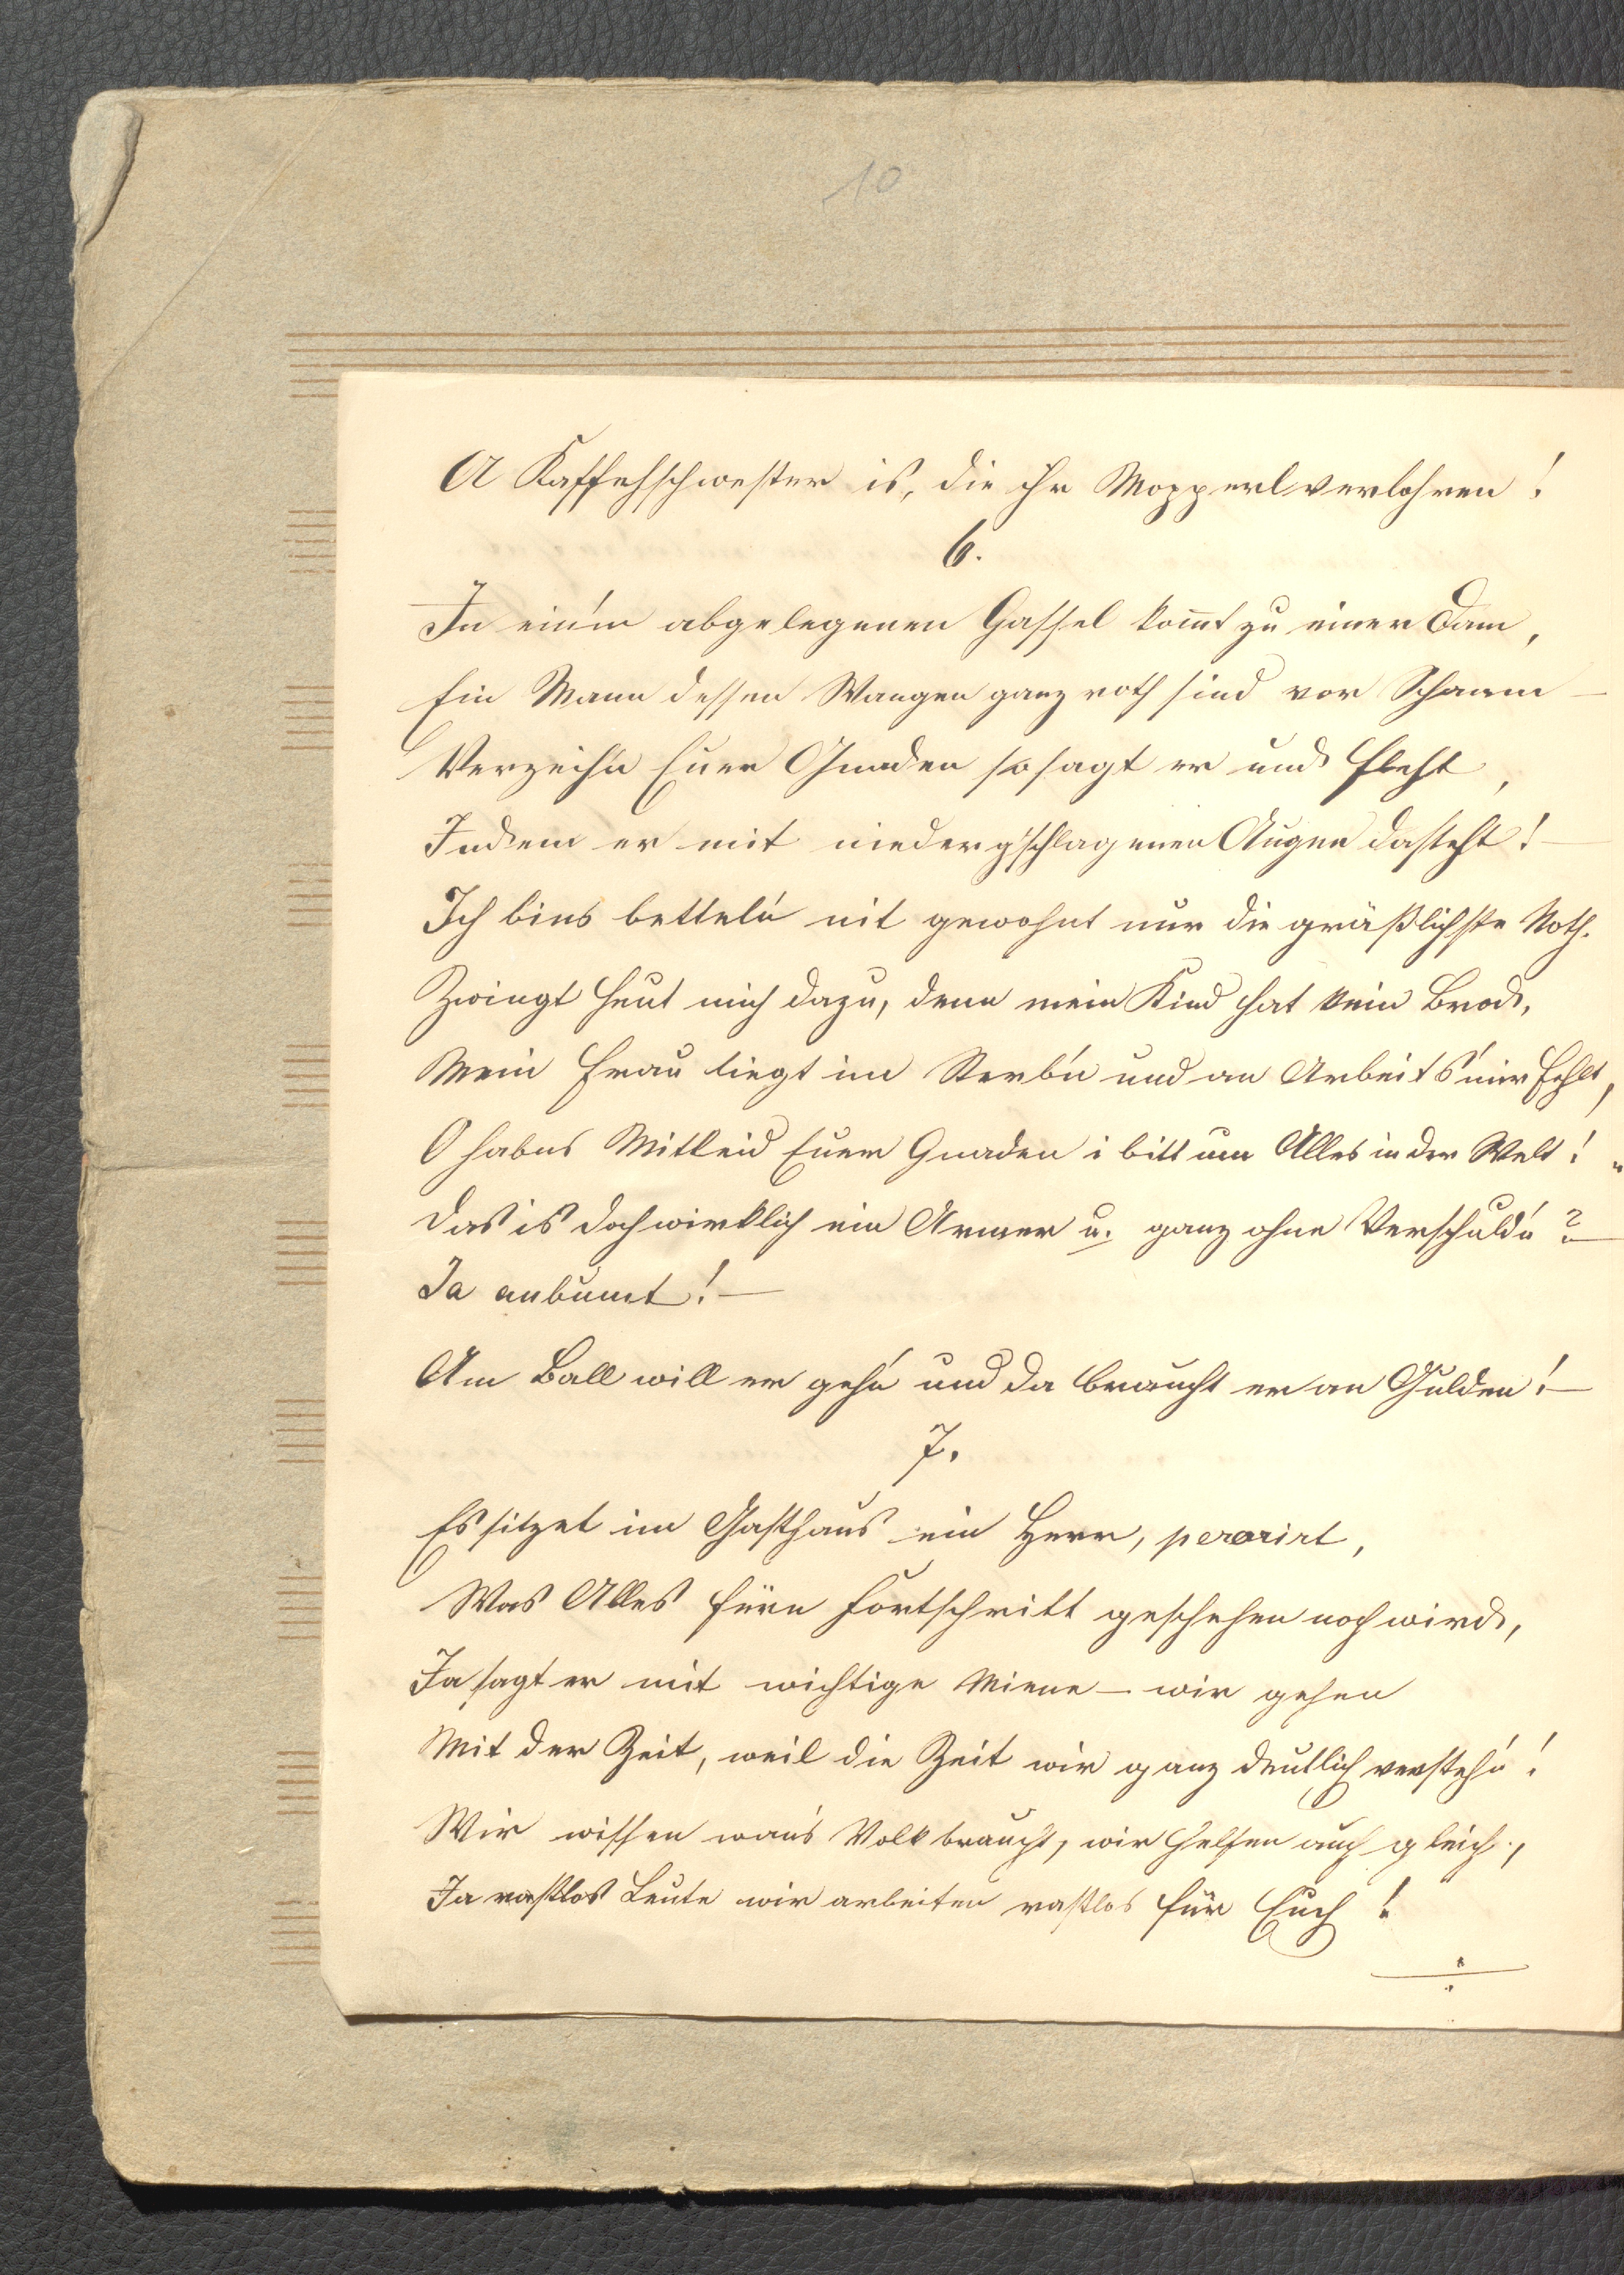 10
A Kaffehschwester is, die ihr Mopperl verlohren!
6.
In ein'm abgelegenen Gassel kom̅t zu einer Dam,
Ein Mann dessen Wangen ganz roth sind vor Schaam –
Verzeih'n Euer Gnaden so sagt er und fleht,
Indem er mit niederg'schlagenen Augen dasteht! –
Ich bins betteln nit gewohnt nur die gräßlichste Noth.
Zwingt heut mich dazu, denn mein Kind hat kein Brod,
Mein Frau liegt im Sterb'n und an Arbeit s'mir fehlt,
O habns Mitleid Euer Gnaden i bitt um Alles in der Welt! "
Das is doch wirklich ein Armer u. ganz ohne Verschuld'n? –
Ja anbumt! –
Am Ball will er geh'n und da braucht er an Gulden! –
7.
Es sitzet im Gasthaus ein Herr, perorirt,
Was Alles fürn Fortschritt geschehen noch wird,
Ja sagt er mit wichtige Miene – wir gehen
Mit der Zeit, weil die Zeit wir ganz deutlich versteh'n!
Wir wissen wans Volk braucht, wir helfen auch gleich,
Ja rastlos Leute wir arbeiten rastlos für Euch!